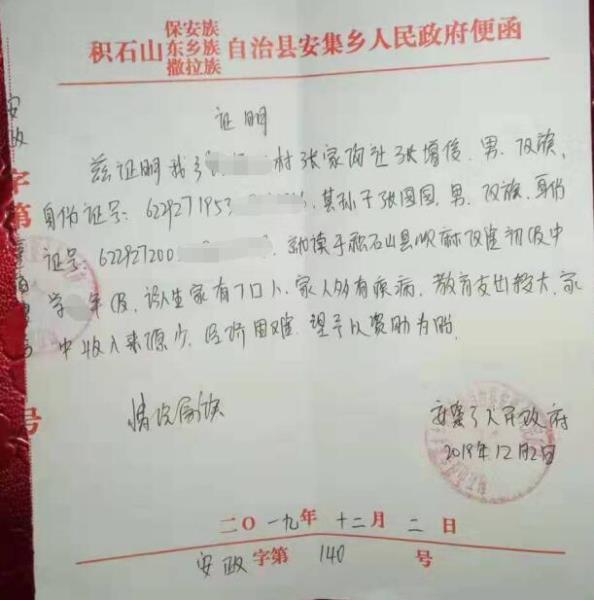 积石山保安族东乡族撒拉族自治县安集乡人民政府便函
证明
兹证明我乡 村张家沟社张增俊，男，汉族，
身份证号：6229271953 ，其孙子张国园，男，汉族，身份
证号：622927200 ，就读于积石山县吹麻滩初级中
学 年级，该生家有7口人，家人多有疾病，教育支出较大，家
中收入来源少，经济困难，望予以资助为盼。
情况属实
安集乡人民政府
2019年12月2日
二〇一九年 十二月 二 日
安政 字第 140 号
安政
字第
号